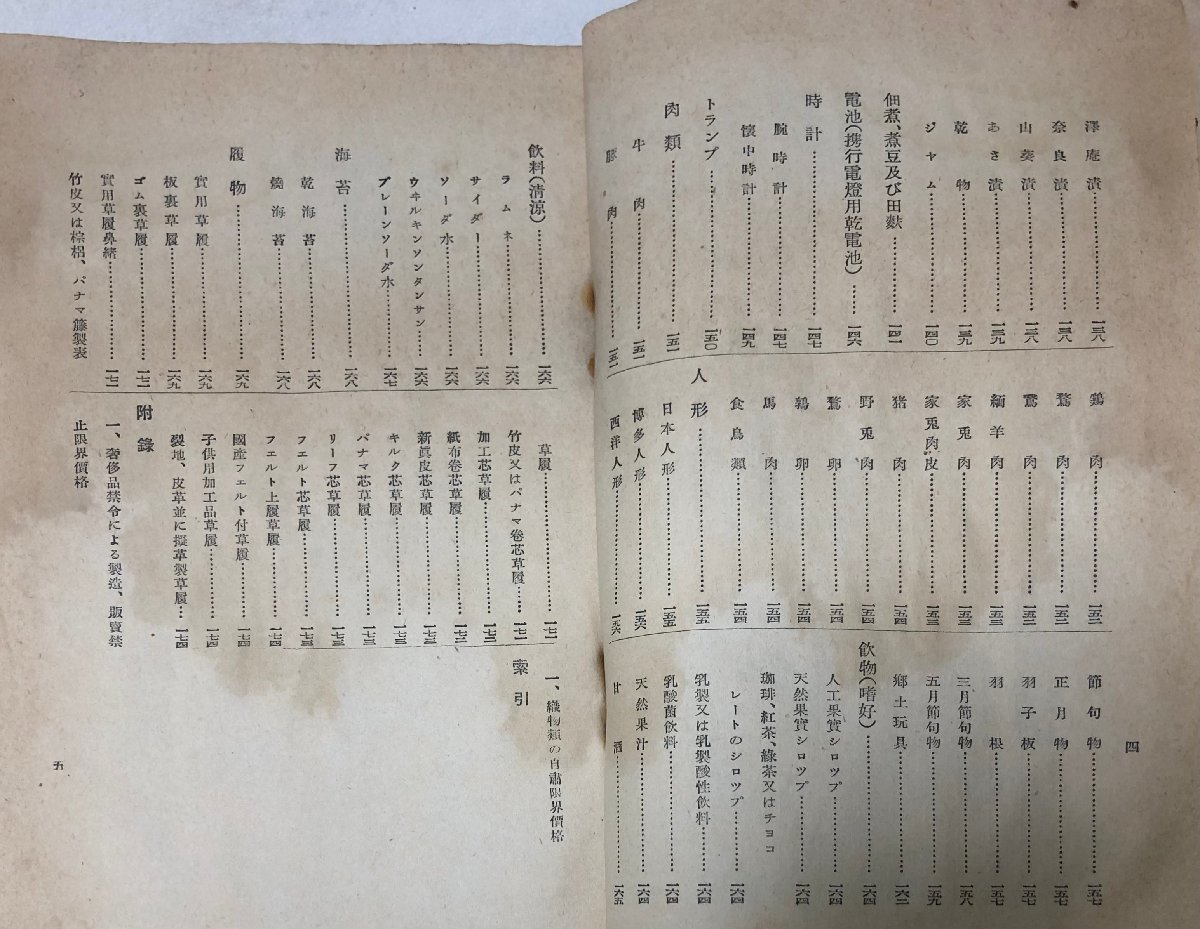 四
澤庵漬…………一三八
奈良漬…………一三八
山葵漬…………一三八
あさ漬…………一三九
乾物…………一三九
ジヤム…………一四〇
佃煮、煮豆及び田麩…………一四二
電池(携行電燈用乾電池)……一四六
時計…………一四七
腕時計…………一四七
懷中時計…………一四九
トランプ…………一五〇
肉類…………一五一
牛肉…………一五一
豚肉…………一五一
鷄肉…………一五二
鶩肉…………一五二
鵞肉…………一五三
緬羊肉…………一五三
家兎肉…………一五三
家兎肉皮…………一五三
猪肉…………一五四
野兎肉…………一五四
鶩卵…………一五四
鶉卵…………一五四
馬肉…………一五四
食鳥類…………一五四
人形…………一五五
日本人形…………一五五
博多人形…………一五六
西洋人形…………一五六
節句物…………一五七
正月物…………一五七
羽子板…………一五七
羽根…………一五七
三月節句物…………一五八
五月節句物…………一五九
鄕土玩具…………一六三
飮物(嗜好)…………一六四
人工果實シロツプ…………一六四
天然果實シロツプ…………一六四
珈琲、紅茶、綠茶又はチヨコ
レートのシロツプ…………一六四
乳製又は乳製酸性飮料……一六四
乳酸菌飮料…………一六四
天然果汁…………一六四
甘酒…………一六五
飮料(清涼)…………一六六
ラムネ…………一六六
サイダー…………一六六
ソーダ水…………一六六
ウヰルキンソンタンサン……一六六
プレーンソーダ水…………一六七
海苔…………一六八
乾海苔…………一六八
燒海苔…………一六八
履物…………一六九
實用草履…………一六九
板裏草履…………一六九
ゴム裏草履…………一七一
實用草履鼻緖…………一七一
竹皮又は棕梠、パナマ籐製表
草履…………一七二
竹皮又はパナマ卷芯草履……一七二
加工芯草履…………一七三
紙布卷芯草履…………一七三
新眞皮芯草履…………一七三
キルク芯草履…………一七三
パナマ芯草履…………一七三
リーフ芯草履…………一七三
フエルト芯草履…………一七三
フエルト上履草履…………一七四
國產フエルト付草履…………一七四
子供用加工品草履…………一七四
裂地、皮革並に擬革製草履…一七四
附錄
一、奢侈品禁令による製造、販賣禁
止限界價格
一、織物類の自肅限界價格
索引
五